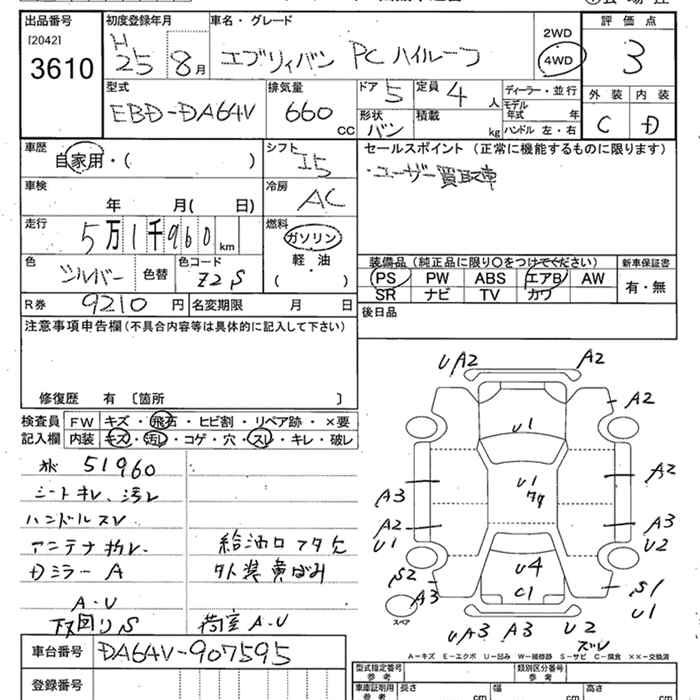 出品番号
[2042]
3610
初度登録年月
H
25 8月
車名・グレード
エブリィバン PC ハイルーフ
2WD
4WD
評価点
3
型式
EBD-DA64V
排気量
660 CC
ドア 5
形状 バン
定員 4 人
積載 kg
ディーラー・並行
モデル
年式 年
ハンドル 左・右
外装 内装
C D
車歴
自家用・( )
シフト I5
セールスポイント (正常に機能するものに限ります)
・ユーザー買取車
車検
年 月( 日)
冷房
AC
走行
5万1千960km
燃料
ガソリン
軽・油
( )
色
シルバー
色替
色コード
Z2S
装備品 (純正品に限り○をつけてください)
新車保証書
PS PW ABS エアB AW
SR ナビ TV カワ
有・無
R券 9210 円
名変期限 月 日
後日品
注意事項申告欄 (不具合内容等は具体的に記入して下さい)
修復歴 有 〔箇所 〕
検査員
記入欄
FW キズ・飛石・ヒビ割・リペア跡・×要
内装 キズ・汚レ・コゲ・穴・スレ・キレ・破レ
51960
シートキレ、汚レ
ハンドルスレ
アンテナ折レ
Dミラー A
A・U
下回りS
給油口フタ欠
外装黄ばみ
荷室 A・U
UA2 A2
A2
U1
A3
A2
U1
U1
A2
A3
U2
S2
A3
U4
C1
S1
U1
スペア
UA3 A3 U2
ズレ
A-キズ E-エクボ U-凹み W-補修跡 S-サビ C-腐食 ××-交換済
車台番号
DA64V-907595
登録番号
型式指定番号
参考
類別区分番号
参考
車庫証明用
参考
長さ cm
幅 cm
高さ cm